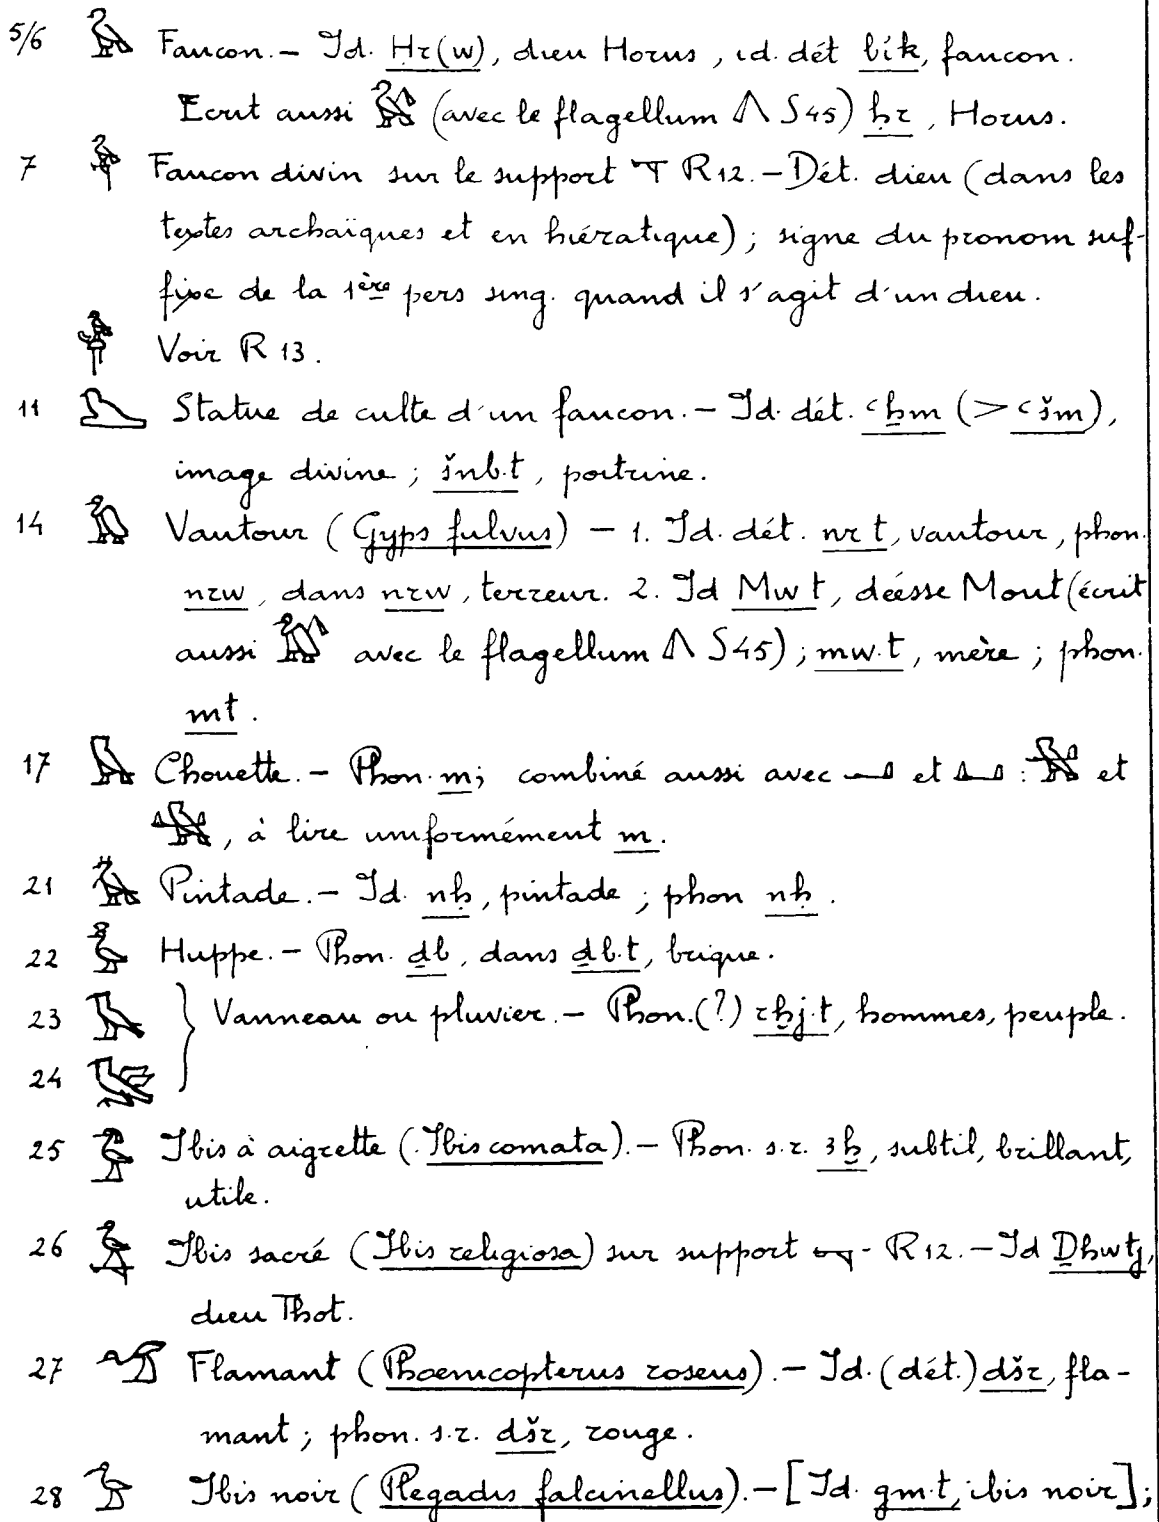 5/6 𓅃 Faucon. – Id. Ḥr(w), dieu Horus, id. dét bik, faucon.
Ecrit aussi 𓅄 (avec le flagellum 𓌅 S45) ḥr, Horus.
7 𓅆 Faucon divin sur le support R12. – Dét. dieu (dans les
textes archaïques et en hiératique) ; signe du pronom suf-
fixe de la 1ère pers sing. quand il s'agit d'un dieu.
Voir R 13.
11 𓅐 Statue de culte d'un faucon. – Id. dét. ꜥẖm (> ꜥšm),
image divine ; šnb.t, poitrine.
14 𓅐 Vautour (Gyps fulvus) – 1. Id. dét. nr t, vautour, phon.
nrw, dans nrw, terreur. 2. Id Mw t, déesse Mout (écrit
aussi 𓅑 avec le flagellum S45) ; mw.t, mère ; phon.
mt.
17 𓅓 Chouette. – Phon. m; combiné aussi avec 𓂝 et 𓂞 : 𓅕 et
𓅖, à lire uniformément m.
21 𓅘 Pintade. – Id. nḥ, pintade ; phon nḥ.
22 𓅙 Huppe. – Phon. ḏb, dans ḏb.t, brique.
23 𓅚 } Vanneau ou pluvier. – Phon.(?) rḫj.t, hommes, peuple.
24 𓅛
25 𓅜 Ibis à aigrette (Ibis comata). – Phon. s.r. ꜣḫ, subtil, brillant,
utile.
26 𓅝 Ibis sacré (Ibis religiosa) sur support - R12. – Id Ḏḥwtj,
dieu Thot.
27 𓅟 Flamant (Phoenicopterus roseus). – Id. (dét.) dšr, fla-
mant ; phon. s.r. dšr, rouge.
28 𓅠 Ibis noir (Plegadis falcinellus). – [Id. gm.t, ibis noir] ;